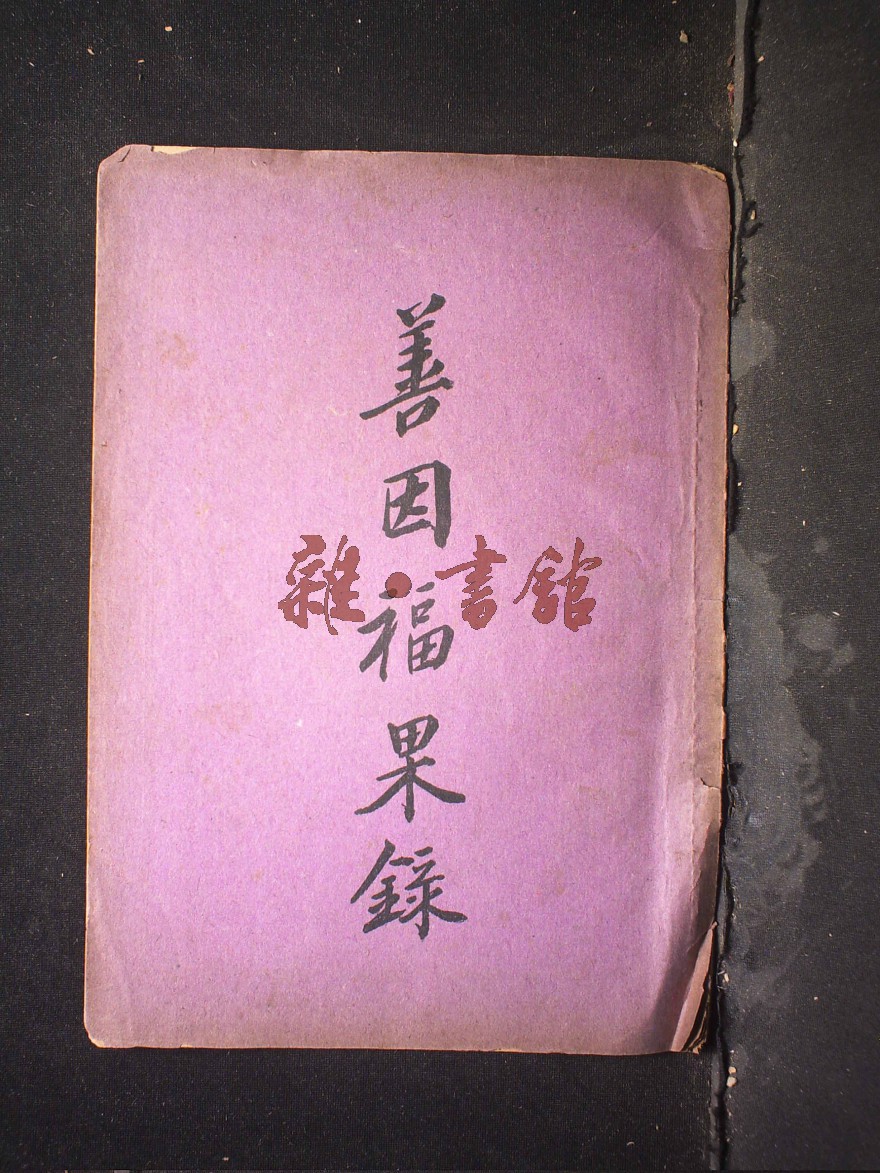 善因福果錄
雜·書館